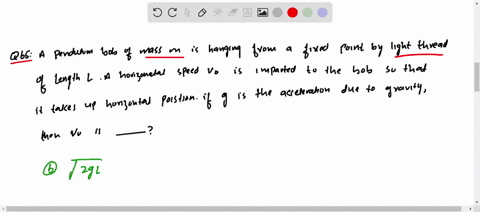 Q65: A pendulum bob of mass m is hanging from a fixed point by light thread
of length L . A horizontal speed v0 is imparted to the bob so that
it takes up horizontal position. if g is the acceleration due to gravity,
then v0 is ____?
(b) √2gL